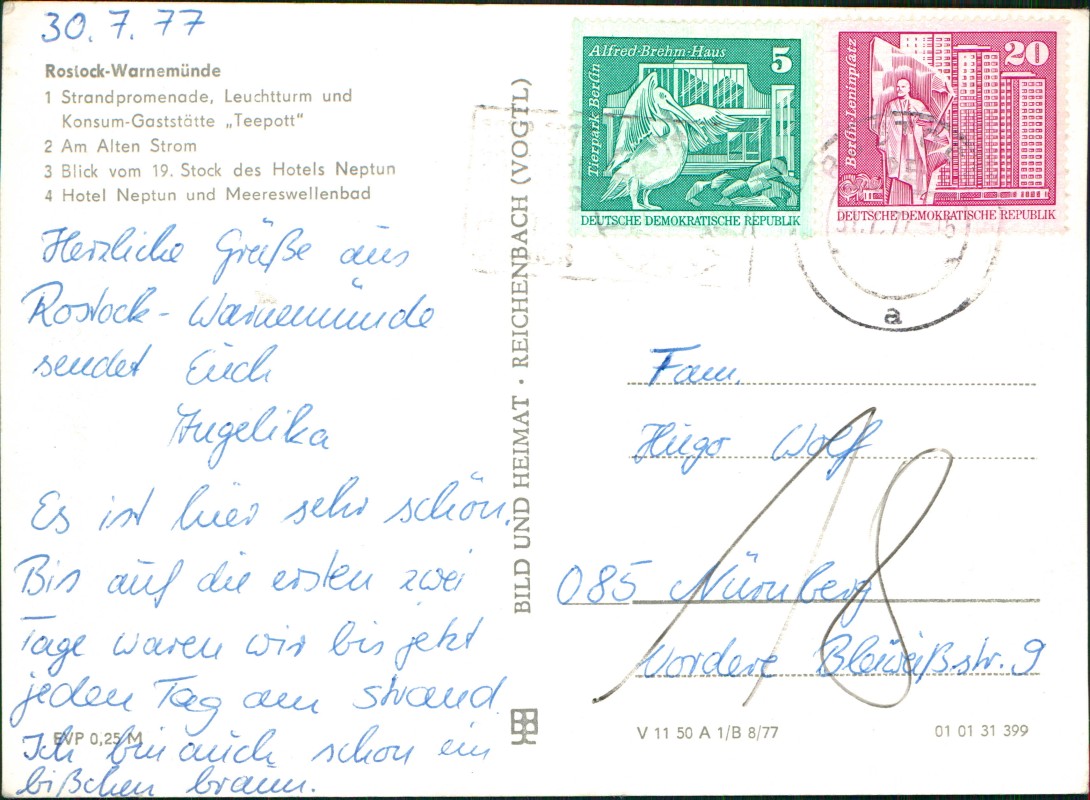 30.7.77
Rostock-Warnemünde
1 Strandpromenade, Leuchtturm und
Konsum-Gaststätte „Teepott"
2 Am Alten Strom
3 Blick vom 19. Stock des Hotels Neptun
4 Hotel Neptun und Meereswellenbad
Herzliche Grüße aus
Rostock-Warnemünde
sendet Euch
Angelika
Es ist hier sehr schön.
Bis auf die ersten zwei
Tage waren wir bis jetzt
jeden Tag am Strand
Ich bin auch schon ein
bißchen braun.
EVP 0,25 M
BILD UND HEIMAT · REICHENBACH (VOGTL)
Alfred-Brehm-Haus
5
Tierpark Berlin
DEUTSCHE DEMOKRATISCHE REPUBLIK
20
Berlin-Leninplatz
DEUTSCHE DEMOKRATISCHE REPUBLIK
31.7.77
a
Fam.
Hugo Wolf
085 Nürnberg
Vordere Bleiweißstr. 9
18
V 11 50 A 1/B 8/77
01 01 31 399